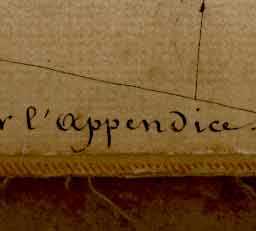 r l'appendice.